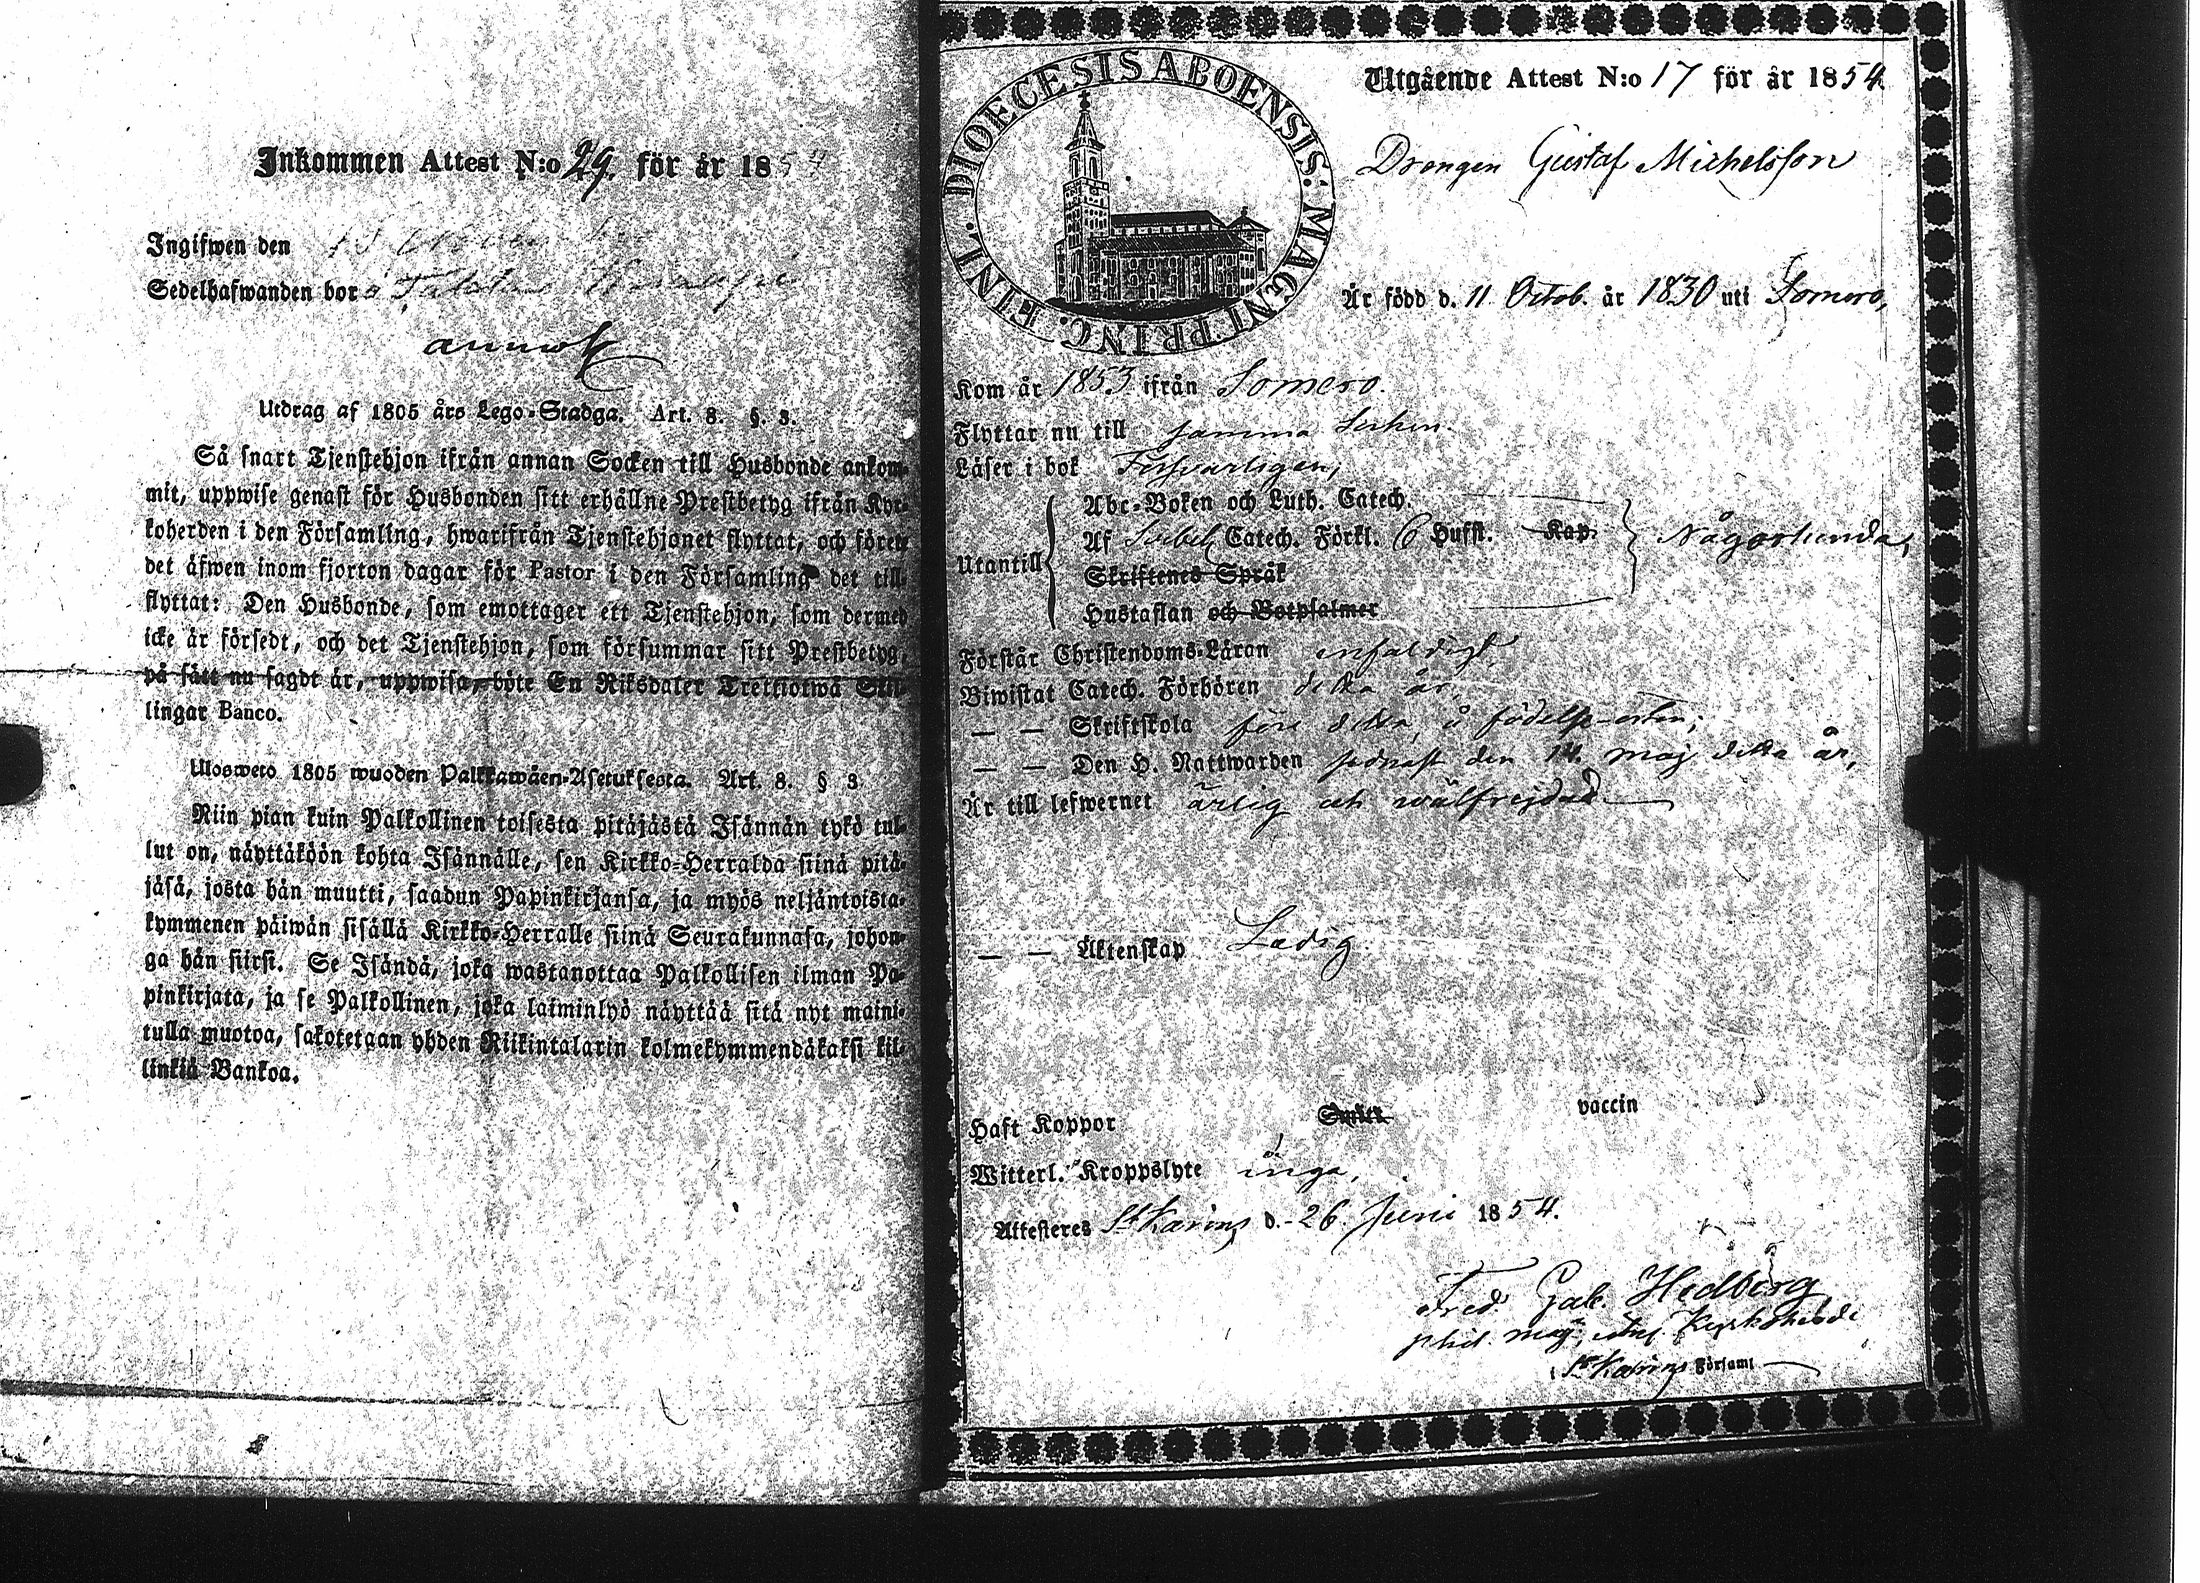 Inkommen Attest N:o 29. för år 1854
Ingifwen den 15
Sedelhafwanden bor å
annot
Utdrag af 1805 års Lego-Stadga. Art. 8. §. 3.
Så snart Tjenstehjon ifrån annan Socken till Husbonde ankom-
mit, uppwise genast för Husbonden sitt erhållne Prestbetyg ifrån Kyr-
koherden i den Församling, hwarifrån Tjenstehjonet flyttat, och förete
det äfwen inom fjorton dagar för Pastor i den Församling det till-
flyttat: Den Husbonde, som emottager ett Tjenstehjon, som dermed
icke är försedt, och det Tjenstehjon, som försummar sitt Prestbetyg,
på sätt nu sagdt är, uppwisa, böte En Riksdaler Trettiotwå Skil-
lingar Banco.
Ulosweto 1805 wuoden Palkkawäen-Asetuksesta. Art. 8. § 3.
Niin pian kuin Palkollinen toisesta pitäjästä Isännän tykö tul-
lut on, näyttäköön kohta Isännälle, sen Kirkko-Herralda siinä pitä-
jäsä, josta hän muutti, saadun Papinkirjansa, ja myös neljäntoista-
kymmenen päiwän sisällä Kirkko-Herralle siinä Seurakunnasa, johon-
ga hän siirsi. Se Isändä, joka wastanottaa Palkollisen ilman Pa-
pinkirjata, ja se Palkollinen, joka laiminlyö näyttää sitä nyt maini-
tulla muotoa, sakotetaan yhden Riikintalarin kolmekymmendäkaksi kil-
linkiä Bankoa.
DIOECESIS ABOENSIS. MAGNI PRINC. FINL.
Utgående Attest N:o 17 för år 1854
Drengen Gustaf Michelsson
Är född d. 11 Octob. år 1830 uti Somero,
Kom år 1853 ifrån Somero.
Flyttar nu till samma Sochn.
Läser i bok Försvarligen,
Abc-Boken och Luth. Catech.
Utantill Af Svebel. Catech. Förkl. 6 Hufst. Kap. Någorlunda,
Skriftenes Språk
Hustaflan och Botpsalmer
Förstår Christendoms-Läran enfaldigt,
Biwistat Catech. Förhören detta år,
— — Skriftskola före detta, å födelse-orten;
— — Den H. Nattwarden sednast den 14. maj detta år,
Är till lefwernet ärlig och wälfrejdad
— — Äktenskap Ledig.
Haft Koppor vaccin
Witterl. Kroppslyte inga,
Attesteres St Karins d. 26. Juni 1854.
Fred. Gab. Hedberg
phil. mag. Kyrkoherde
i St Karins Församl